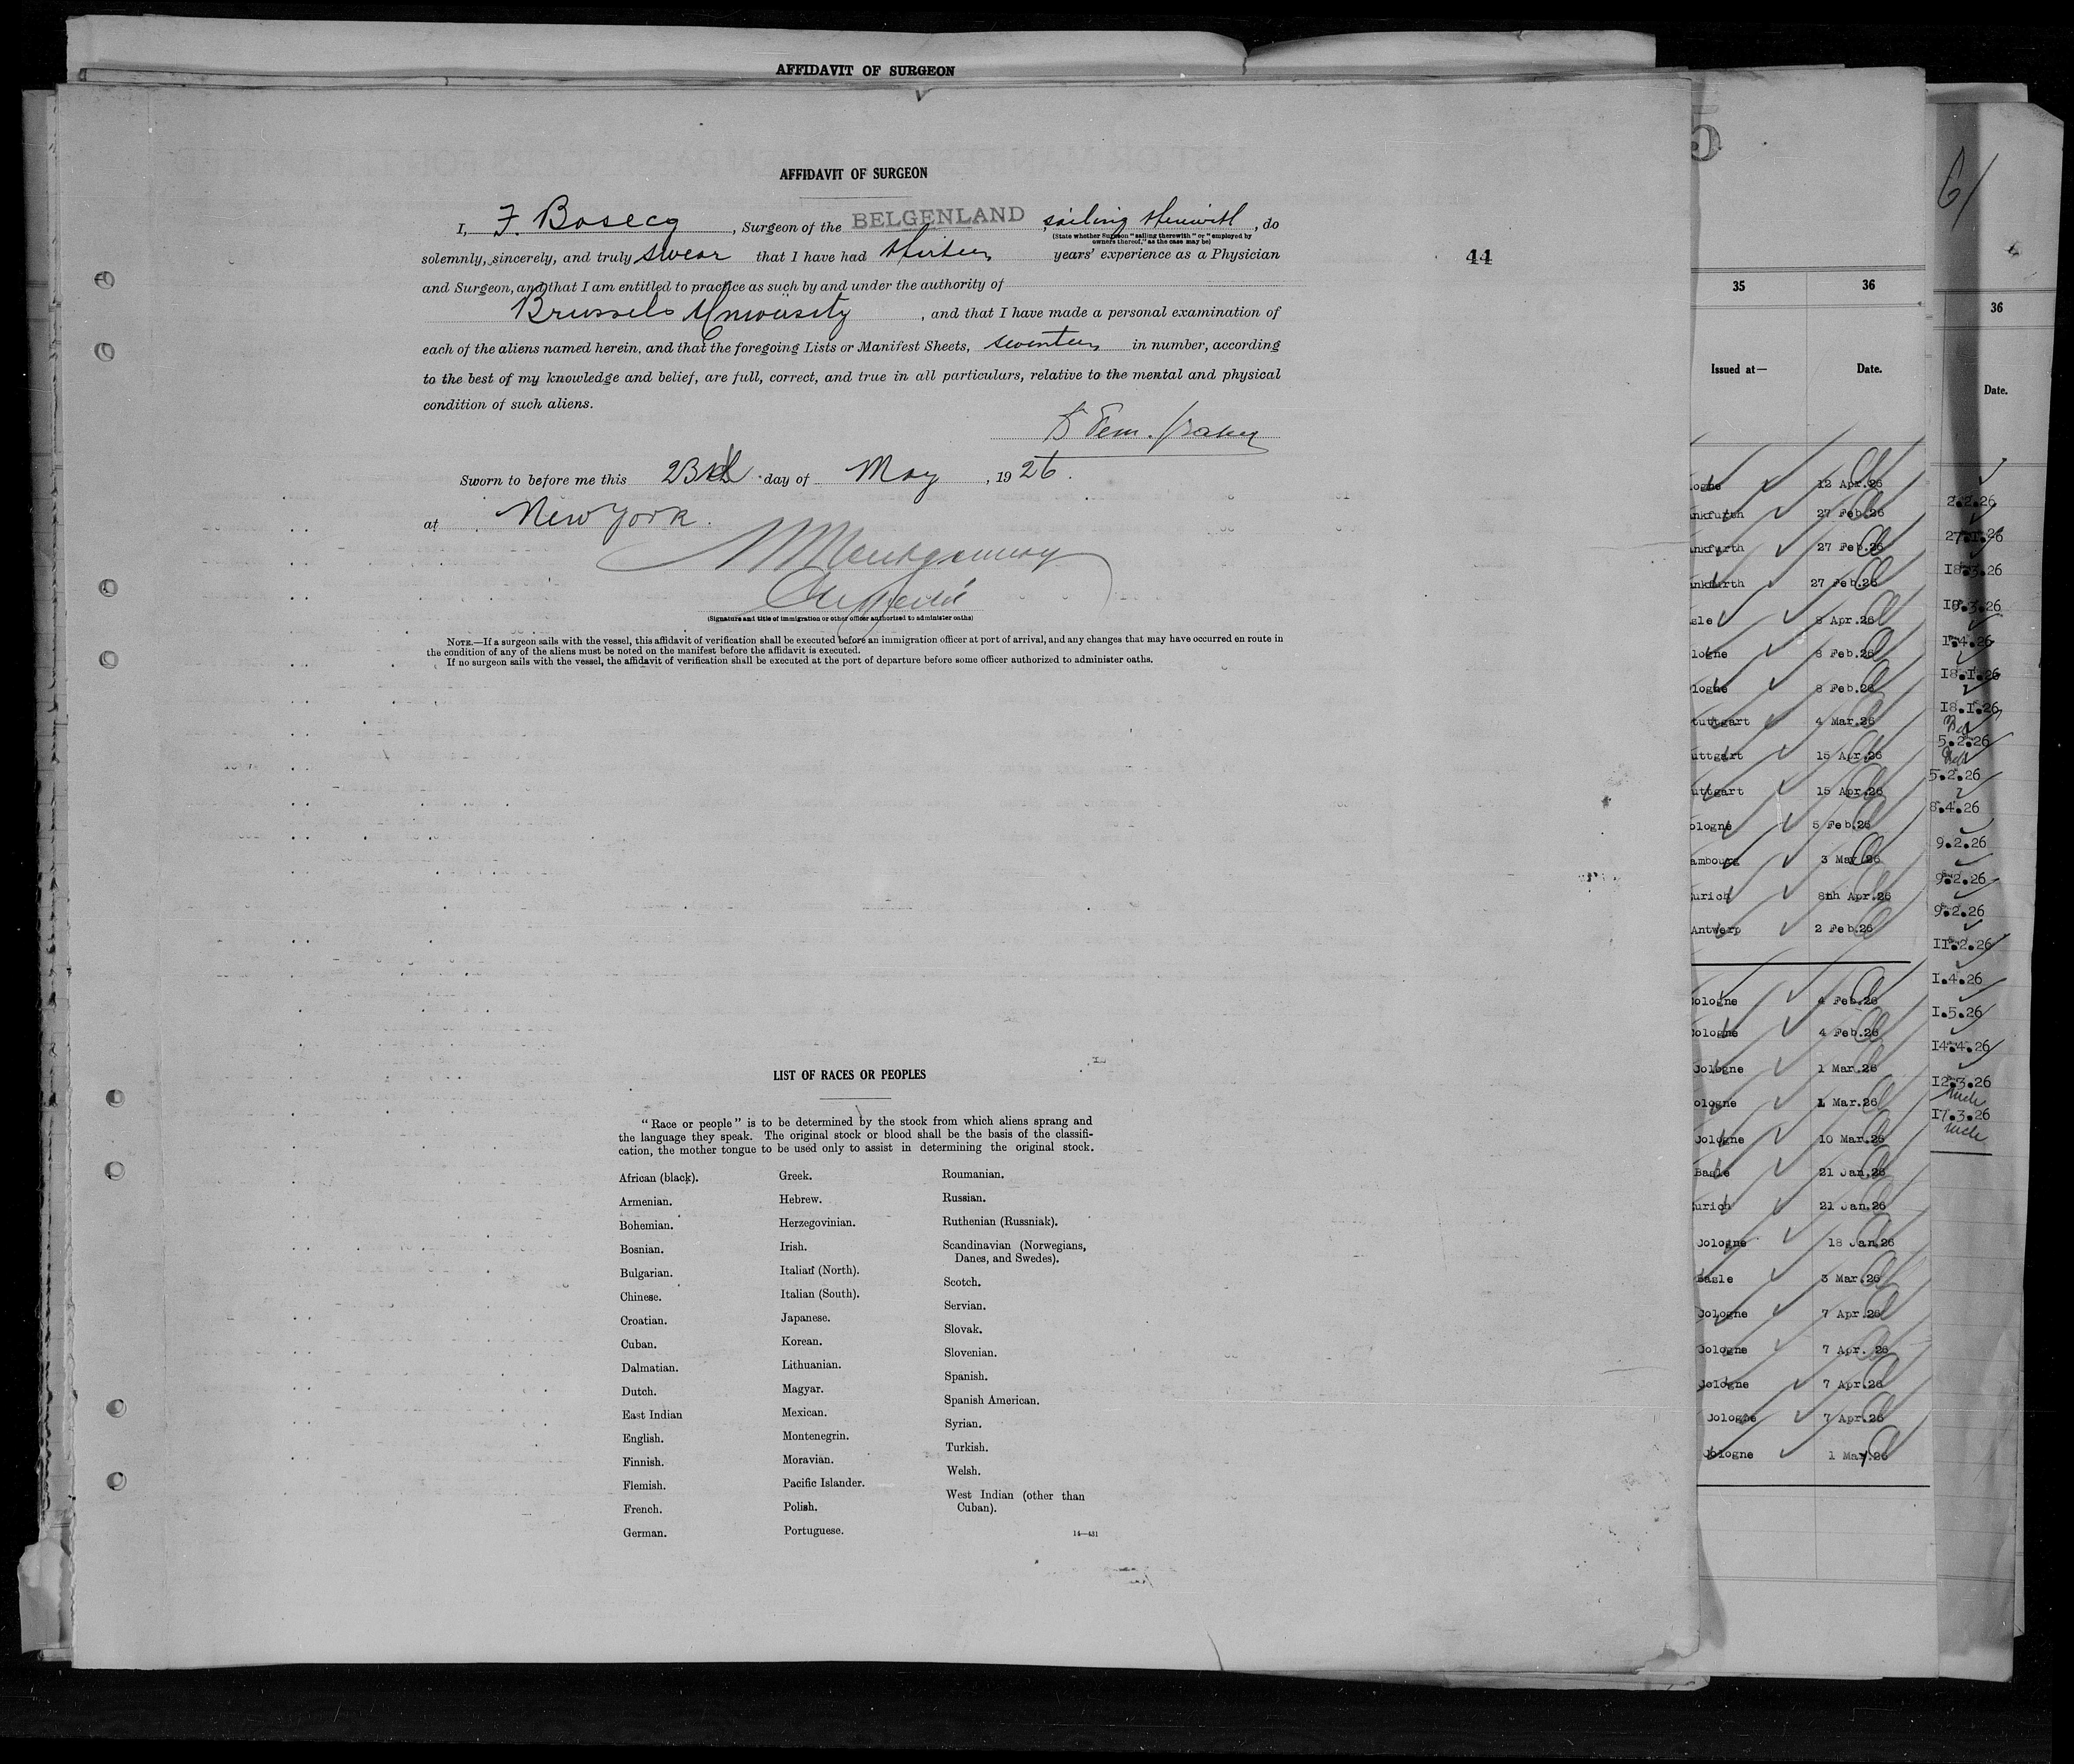 AFFIDAVIT OF SURGEON
AFFIDAVIT OF SURGEON
I, F. Bosecq, Surgeon of the BELGENLAND, sailing therewith, do
(State whether Surgeon "sailing therewith" or "employed by
owners thereof," as the case may be)
solemnly, sincerely, and truly swear that I have had thirteen years' experience as a Physician
and Surgeon, and that I am entitled to practice as such by and under the authority of
Brussels University, and that I have made a personal examination of
each of the aliens named herein, and that the foregoing Lists or Manifest Sheets, seventeen in number, according
to the best of my knowledge and belief, are full, correct, and true in all particulars, relative to the mental and physical
condition of such aliens.
Sworn to before me this 23rd day of May, 1926.
at New York.
Montgomery
(Signature and title of immigration or other officer authorized to administer oaths)
NOTE.—If a surgeon sails with the vessel, this affidavit of verification shall be executed before an immigration officer at port of arrival, and any changes that may have occurred en route in
the condition of any of the aliens must be noted on the manifest before the affidavit is executed.
If no surgeon sails with the vessel, the affidavit of verification shall be executed at the port of departure before some officer authorized to administer oaths.
44
LIST OF RACES OR PEOPLES
"Race or people" is to be determined by the stock from which aliens sprang and
the language they speak. The original stock or blood shall be the basis of the classifi-
cation, the mother tongue to be used only to assist in determining the original stock.
African (black).
Armenian.
Bohemian.
Bosnian.
Bulgarian.
Chinese.
Croatian.
Cuban.
Dalmatian.
Dutch.
East Indian
English.
Finnish.
Flemish.
French.
German.
Greek.
Hebrew.
Herzegovinian.
Irish.
Italian (North).
Italian (South).
Japanese.
Korean.
Lithuanian.
Magyar.
Mexican.
Montenegrin.
Moravian.
Pacific Islander.
Polish.
Portuguese.
Roumanian.
Russian.
Ruthenian (Russniak).
Scandinavian (Norwegians,
Danes, and Swedes).
Scotch.
Servian.
Slovak.
Slovenian.
Spanish.
Spanish American.
Syrian.
Turkish.
Welsh.
West Indian (other than
Cuban).
14—431
5
35 36
Issued at— Date.
ogne 12 Apr.26
nkfurth 27 Feb.26
nkfurth 27 Feb.26
nkfurth 27 Feb.26
sle 8 Apr.26
logne 8 Feb.26
logne 8 Feb.26
tuttgart 4 Mar.26
uttgart 15 Apr.26
uttgart 15 Apr.26
ologne 5 Feb.26
ambourg 3 May 26
urich 8nh Apr.26
Antwerp 2 Feb.26
Cologne 4 Feb.26
Cologne 4 Feb.26
Cologne 1 Mar.26
ologne 1 Mar.26
Cologne 10 Mar.26
Basle 21 Jan.26
urich 21 Jan.26
Cologne 18 Jan.26
Basle 3 Mar.26
Cologne 7 Apr.26
Cologne 7 Apr. 26
Cologne 7 Apr.26
Cologne 7 Apr.26
Cologne 1 Mar.26
6
36
Date.
2.2.26
27.1.26
18.3.26
18.3.26
1.4.26
18.1.26
18.1.26
5.2.26
5.2.26
8.4.26
9.2.26
9.2.26
9.2.26
11.2.26
1.4.26
1.5.26
14.4.26
12.3.26
17.3.26